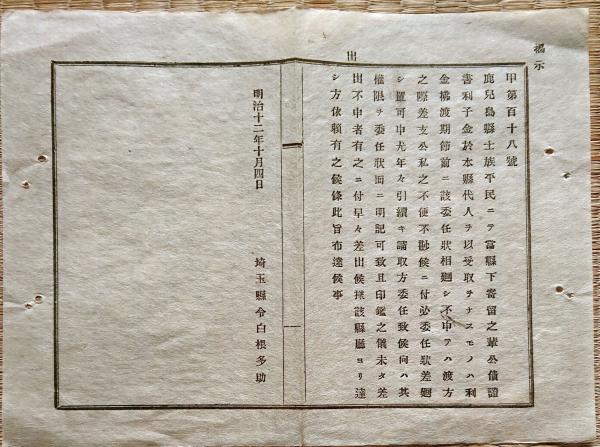 揭示
出
甲第百十八號
鹿兒島縣士族平民ニテ當縣下寄留之輩公債證
書利子金於本縣代人ヲ以受取ヲナスモノハ利
金拂渡期節前ニ該委任狀相廻シ不申テハ渡方
之際差支公私之不便不尠候ニ付必委任狀差廻
シ置可申尤年々引續キ請取方委任致候向ハ其
權限ヲ委任狀面ニ明記可致且印鑑之儀未タ差
出不申者有之ニ付早々差出候樣該縣廳ヨリ達
シ方依賴有之候條此旨布達候事
明治十二年十月四日
埼玉縣令白根多助